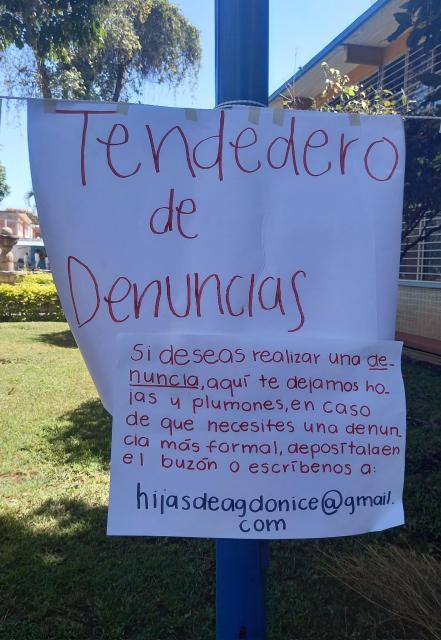 Tendedero
de
Denuncias
Si deseas realizar una de-
nuncia, aquí te dejamos ho-
jas y plumones, en caso
de que necesites una denun_
cia más formal, deposítala en
el buzón o escríbenos a:
hijasdeagdonice@gmail.
com